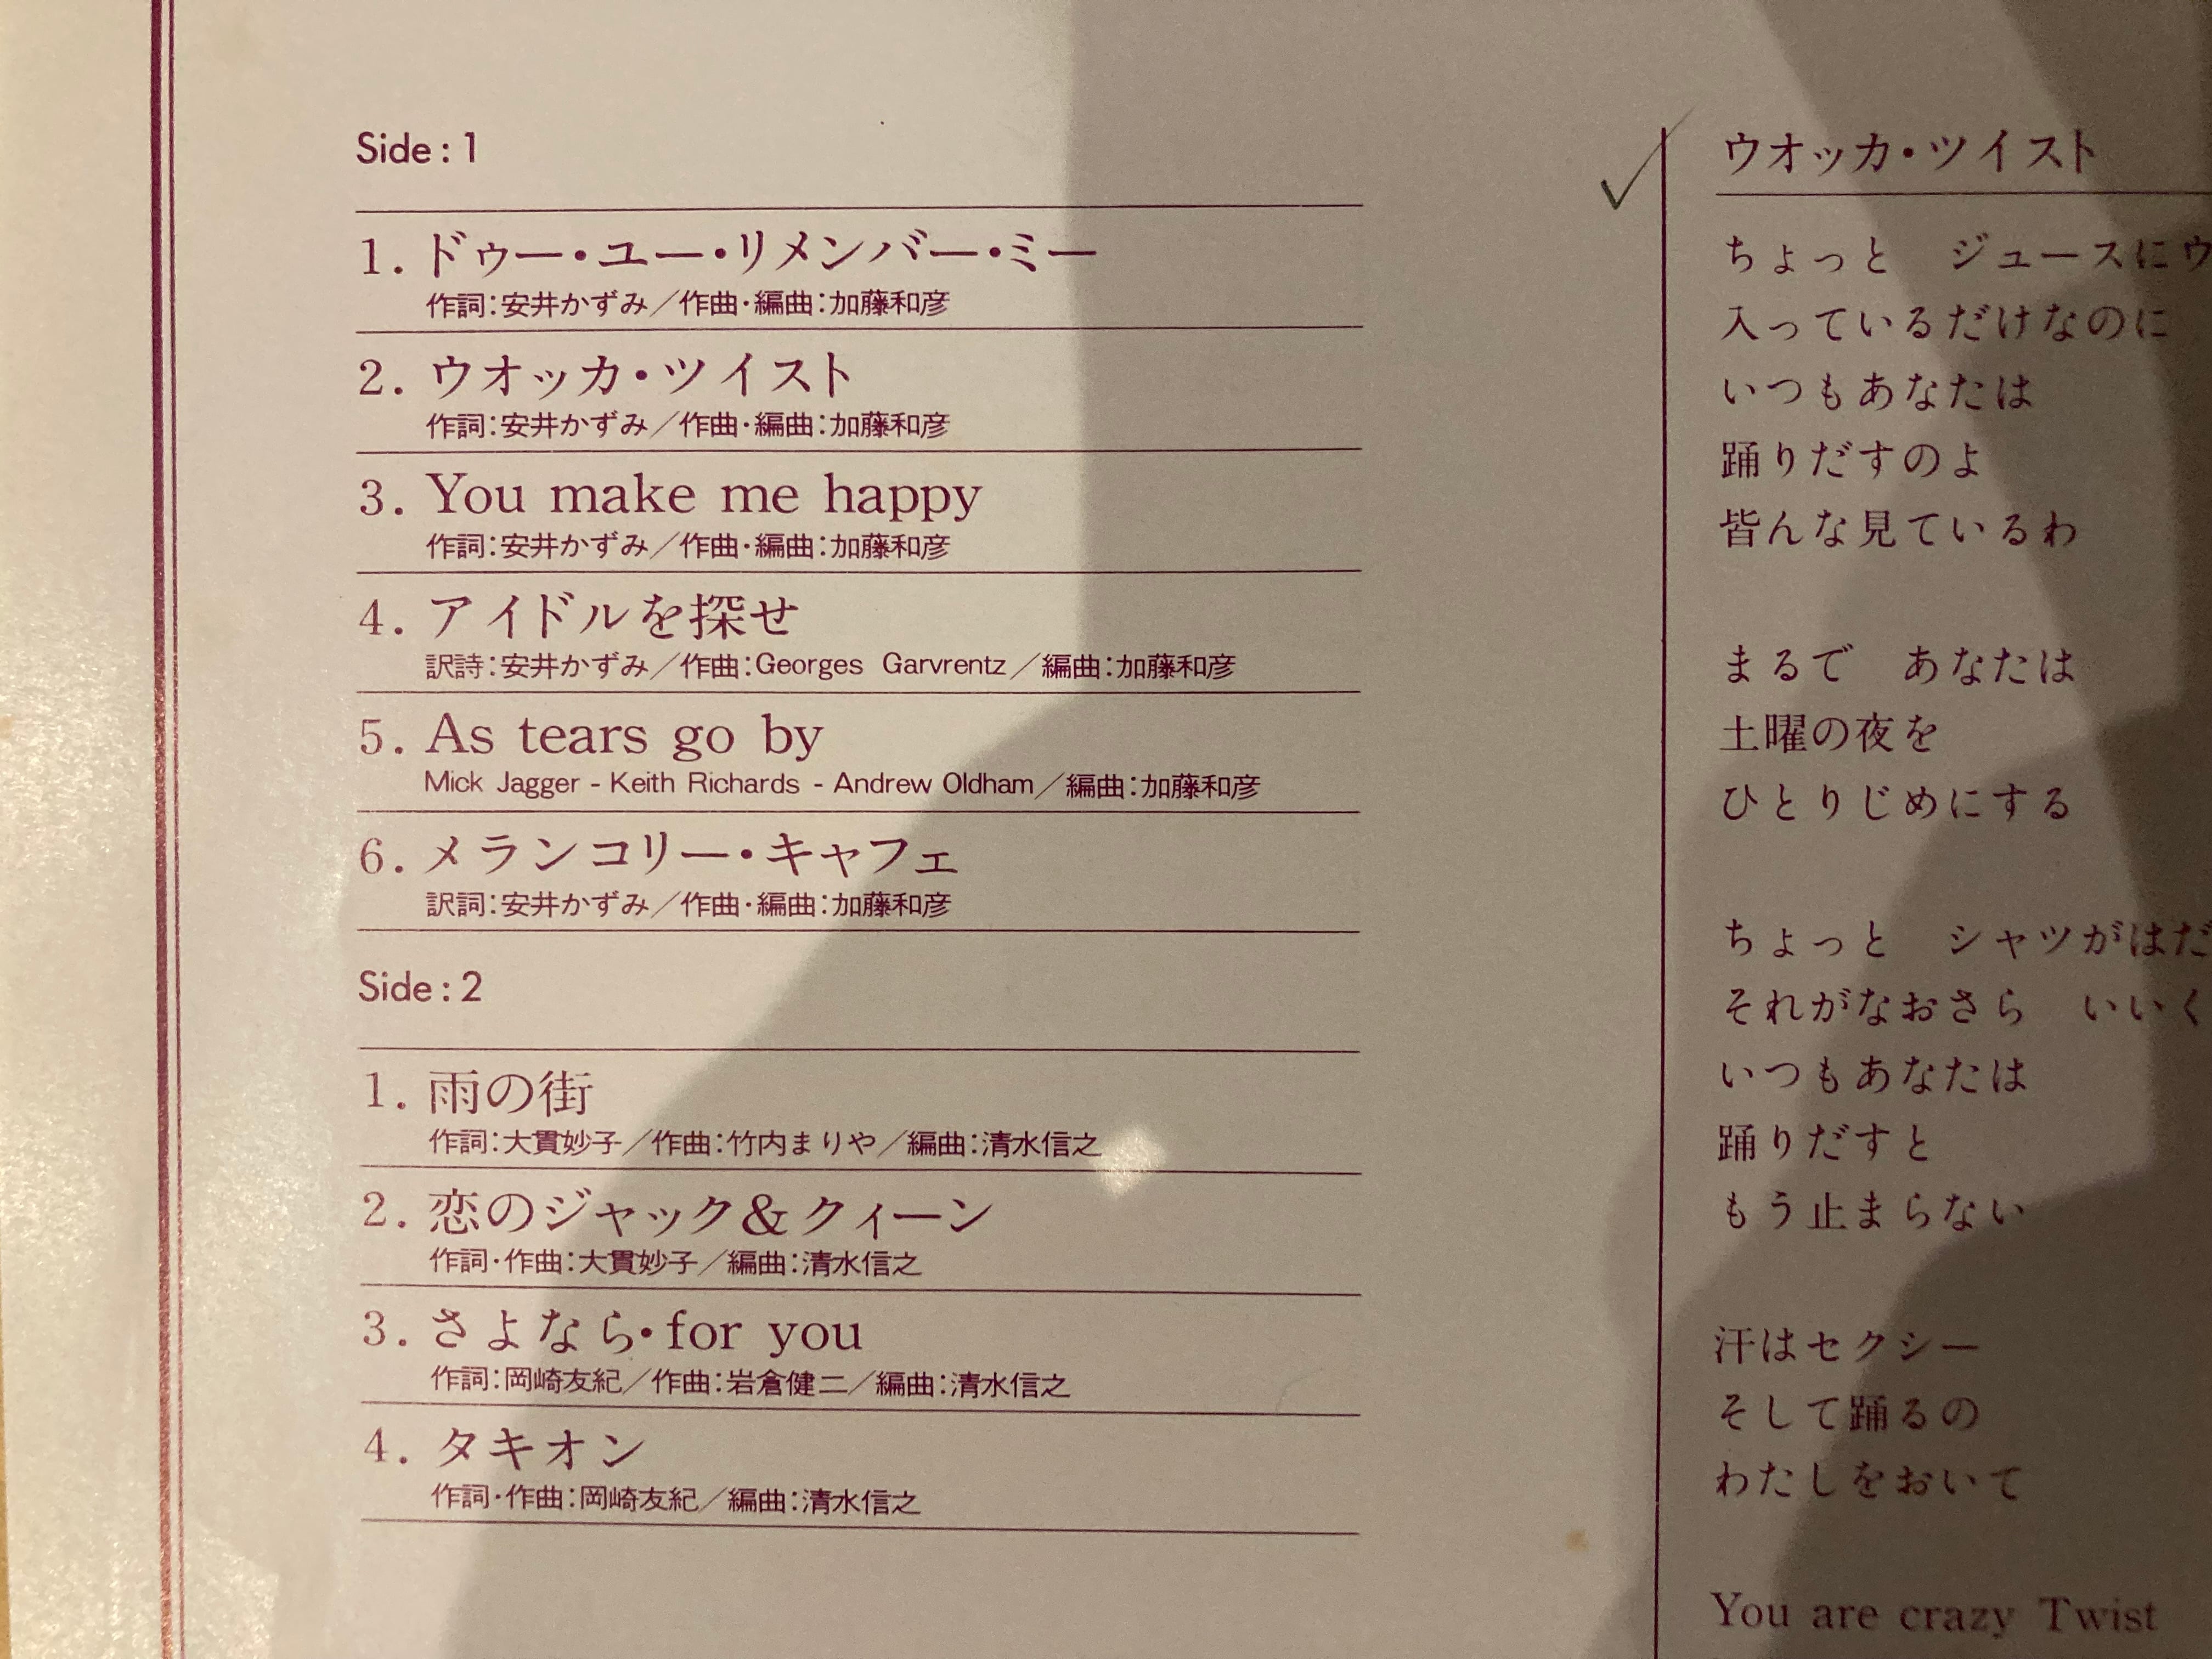 Side : 1
1. ドゥー・ユー・リメンバー・ミー
作詞：安井かずみ／作曲・編曲：加藤和彦
2. ウオッカ・ツイスト
作詞：安井かずみ／作曲・編曲：加藤和彦
3. You make me happy
作詞：安井かずみ／作曲・編曲：加藤和彦
4. アイドルを探せ
訳詩：安井かずみ／作曲：Georges Garvrentz／編曲：加藤和彦
5. As tears go by
Mick Jagger - Keith Richards - Andrew Oldham／編曲：加藤和彦
6. メランコリー・キャフェ
訳詞：安井かずみ／作曲・編曲：加藤和彦
Side : 2
1. 雨の街
作詞：大貫妙子／作曲：竹内まりや／編曲：清水信之
2. 恋のジャック＆クィーン
作詞・作曲：大貫妙子／編曲：清水信之
3. さよなら・for you
作詞：岡崎友紀／作曲：岩倉健二／編曲：清水信之
4. タキオン
作詞・作曲：岡崎友紀／編曲：清水信之
ウオッカ・ツイスト
ちょっと　ジュースにウ
入っているだけなのに
いつもあなたは
踊りだすのよ
皆んな見ているわ
まるで　あなたは
土曜の夜を
ひとりじめにする
ちょっと　シャツがはだ
それがなおさら　いいく
いつもあなたは
踊りだすと
もう止まらない
汗はセクシー
そして踊るの
わたしをおいて
You are crazy Twist